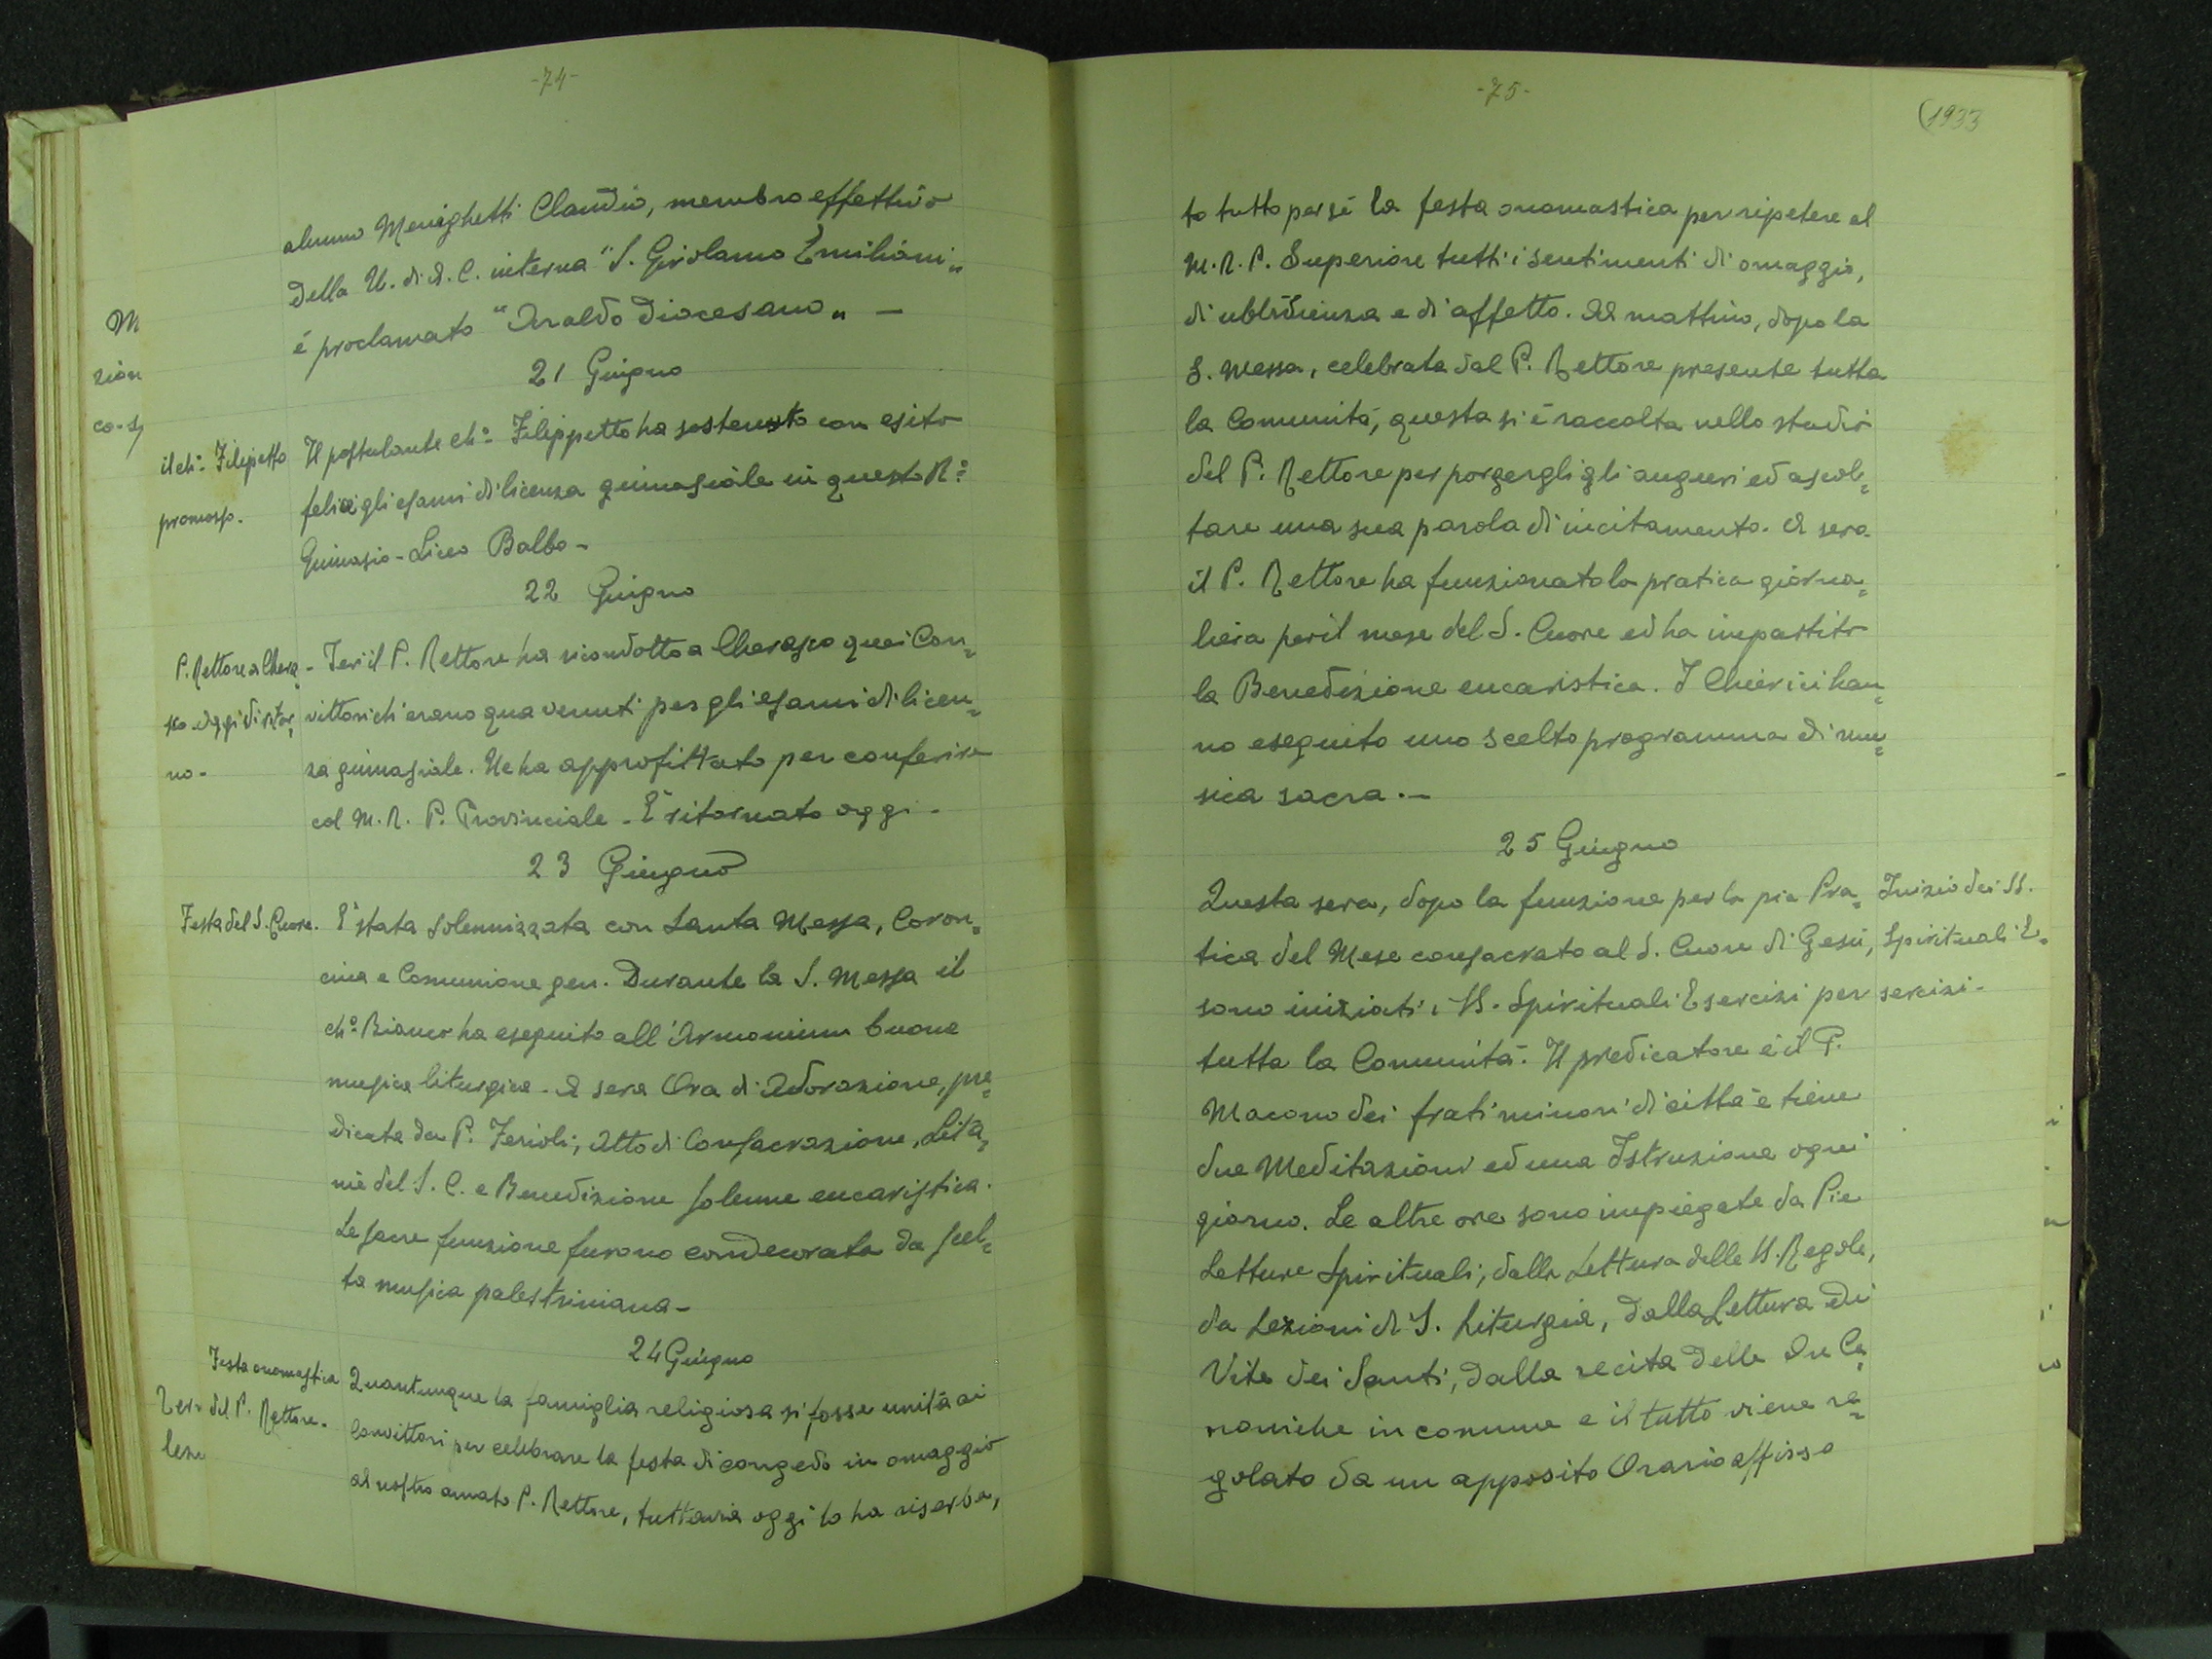 -74-
alunno Menighetti Claudio, membro effettivo
della U. di A. C. interna "S. Girolamo Emiliani„
è proclamato "Araldo Diocesano„ —
21 Giugno
il ch.º Filipetto
promosso.
Il postulante ch.º Filippetto ha sostenuto con esito
felice gli esami di licenza ginnasiale in questo R.º
Ginnasio-Liceo Balbo-
22 Giugno
P. Rettore a Chera=
sco e oggi di ritor=
no-
- Ieri il P. Rettore ha ricondotto a Cherasco quei Con=
vittori ch'erano qua venuti per gli esami di licen=
za ginnasiale. Ne ha approfittato per conferire
col M. R. P. Provinciale - È ritornato oggi -
23 Giugno
Festa del S. Cuore.
È stata solennizzata con Santa Messa, Coron=
cina e Comunione gen. Durante la S. Messa il
ch.º Bianco ha eseguito all'Armonium buona
musica liturgica. A sera Ora di Adorazione, pre=
dicata da P. Ferioli; Atto di Consacrazione, Lita=
nie del S. C. e Benedizione solenne eucaristica.
Le sacre funzione furono condecorate da scel=
ta musica palestriniana-
24 Giugno
Festa onomastica
del P. Rettore.
Quantunque la famiglia religiosa si fosse unita ai
Convittori per celebrare la festa di congedo in omaggio
al nostro amato P. Rettore, tuttavia oggi lo ha riserba=
M
zion
co-s
lez
-75-
(1933
to tutto per sé la festa onomastica per ripetere al
M. R. P. Superiore tutti i sentimenti di omaggio,
di ubbidienza e di affetto. Al mattino, dopo la
S. Messa, celebrata dal P. Rettore presente tutta
la Comunità, questa si è raccolta nello studio
del P. Rettore per porgergli gli auguri ed ascol=
tare una sua parola di incitamento. A sera
il P. Rettore ha funzionato la pratica giorna=
liera per il mese del S. Cuore ed ha impartito
la Benedizione eucaristica. I Chierici han=
no eseguito uno scelto programma di mu=
sica sacra.-
25 Giugno
Questa sera, dopo la funzione per la pia Pra=
tica del Mese consacrato al S. Cuore di Gesù,
sono iniziati i SS. Spirituali Esercizi per
tutta la Comunità. Il predicatore è il P.
Macono dei frati minori di città e tiene
due Meditazioni ed una Istruzione ogni
giorno. Le altre ore sono impiegate da Pie
Letture Spirituali, dalla Lettura delle SS. Regole,
da Lezioni di S. Liturgia, dalla Lettura di
Vite dei Santi, dalla recita delle Ore Ca=
noniche in comune e il tutto viene re=
golato da un apposito Orario affisso
Inizio dei SS.
Spirituali E=
sercizi-